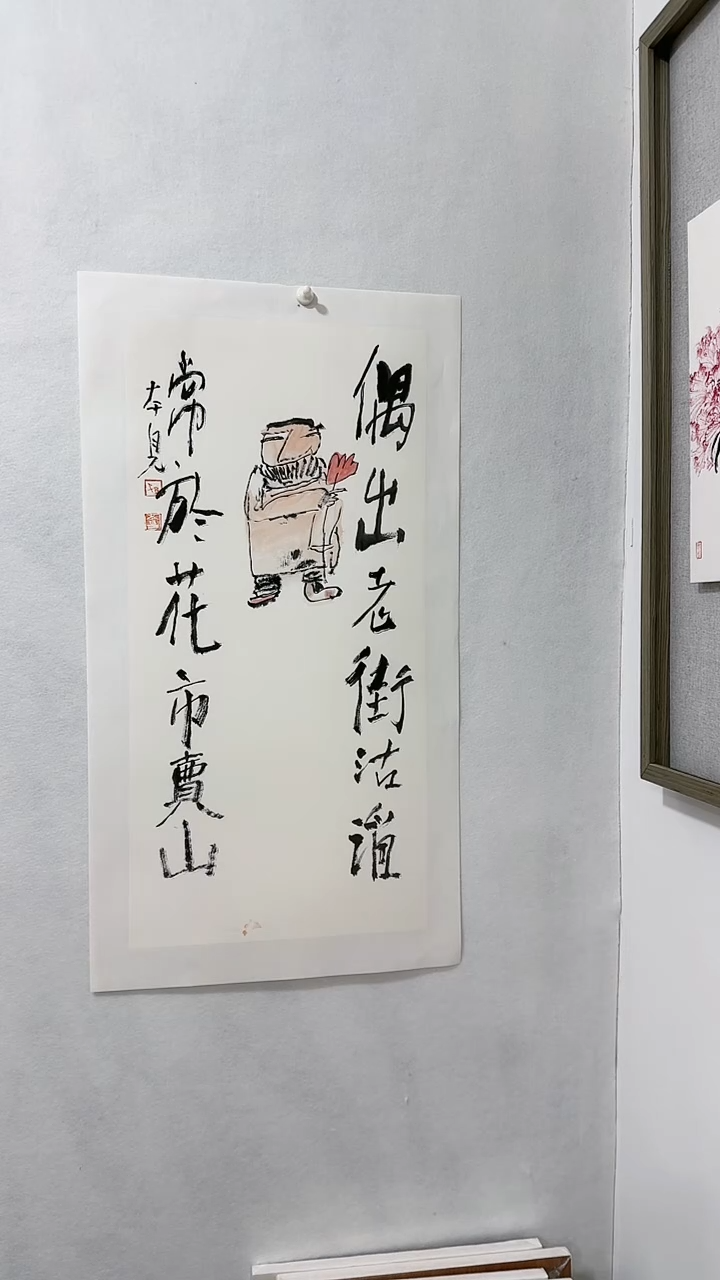 偶出老街沽酒
常於花市賣山
本見